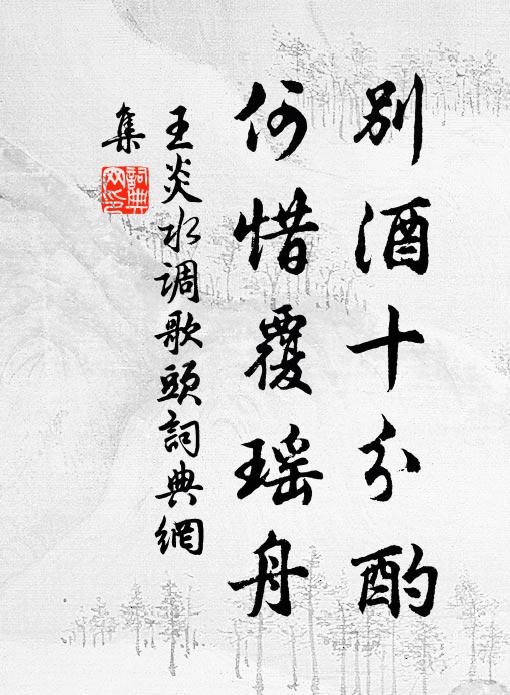 别酒十分酌
何惜覆瑶舟
王炎水调歌頭詞典網
集
詞典
网